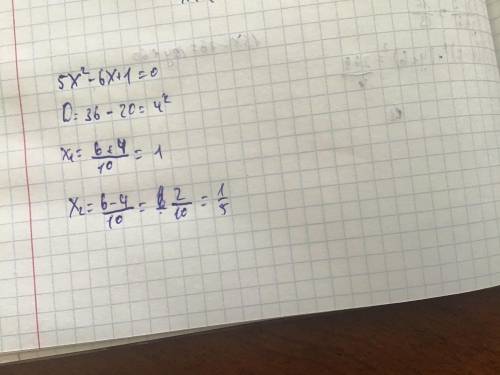 5x²-6x+1=0
D=36-20=4²
x₁=6+4/10=1
x₂=6-4/10=2/10=1/5